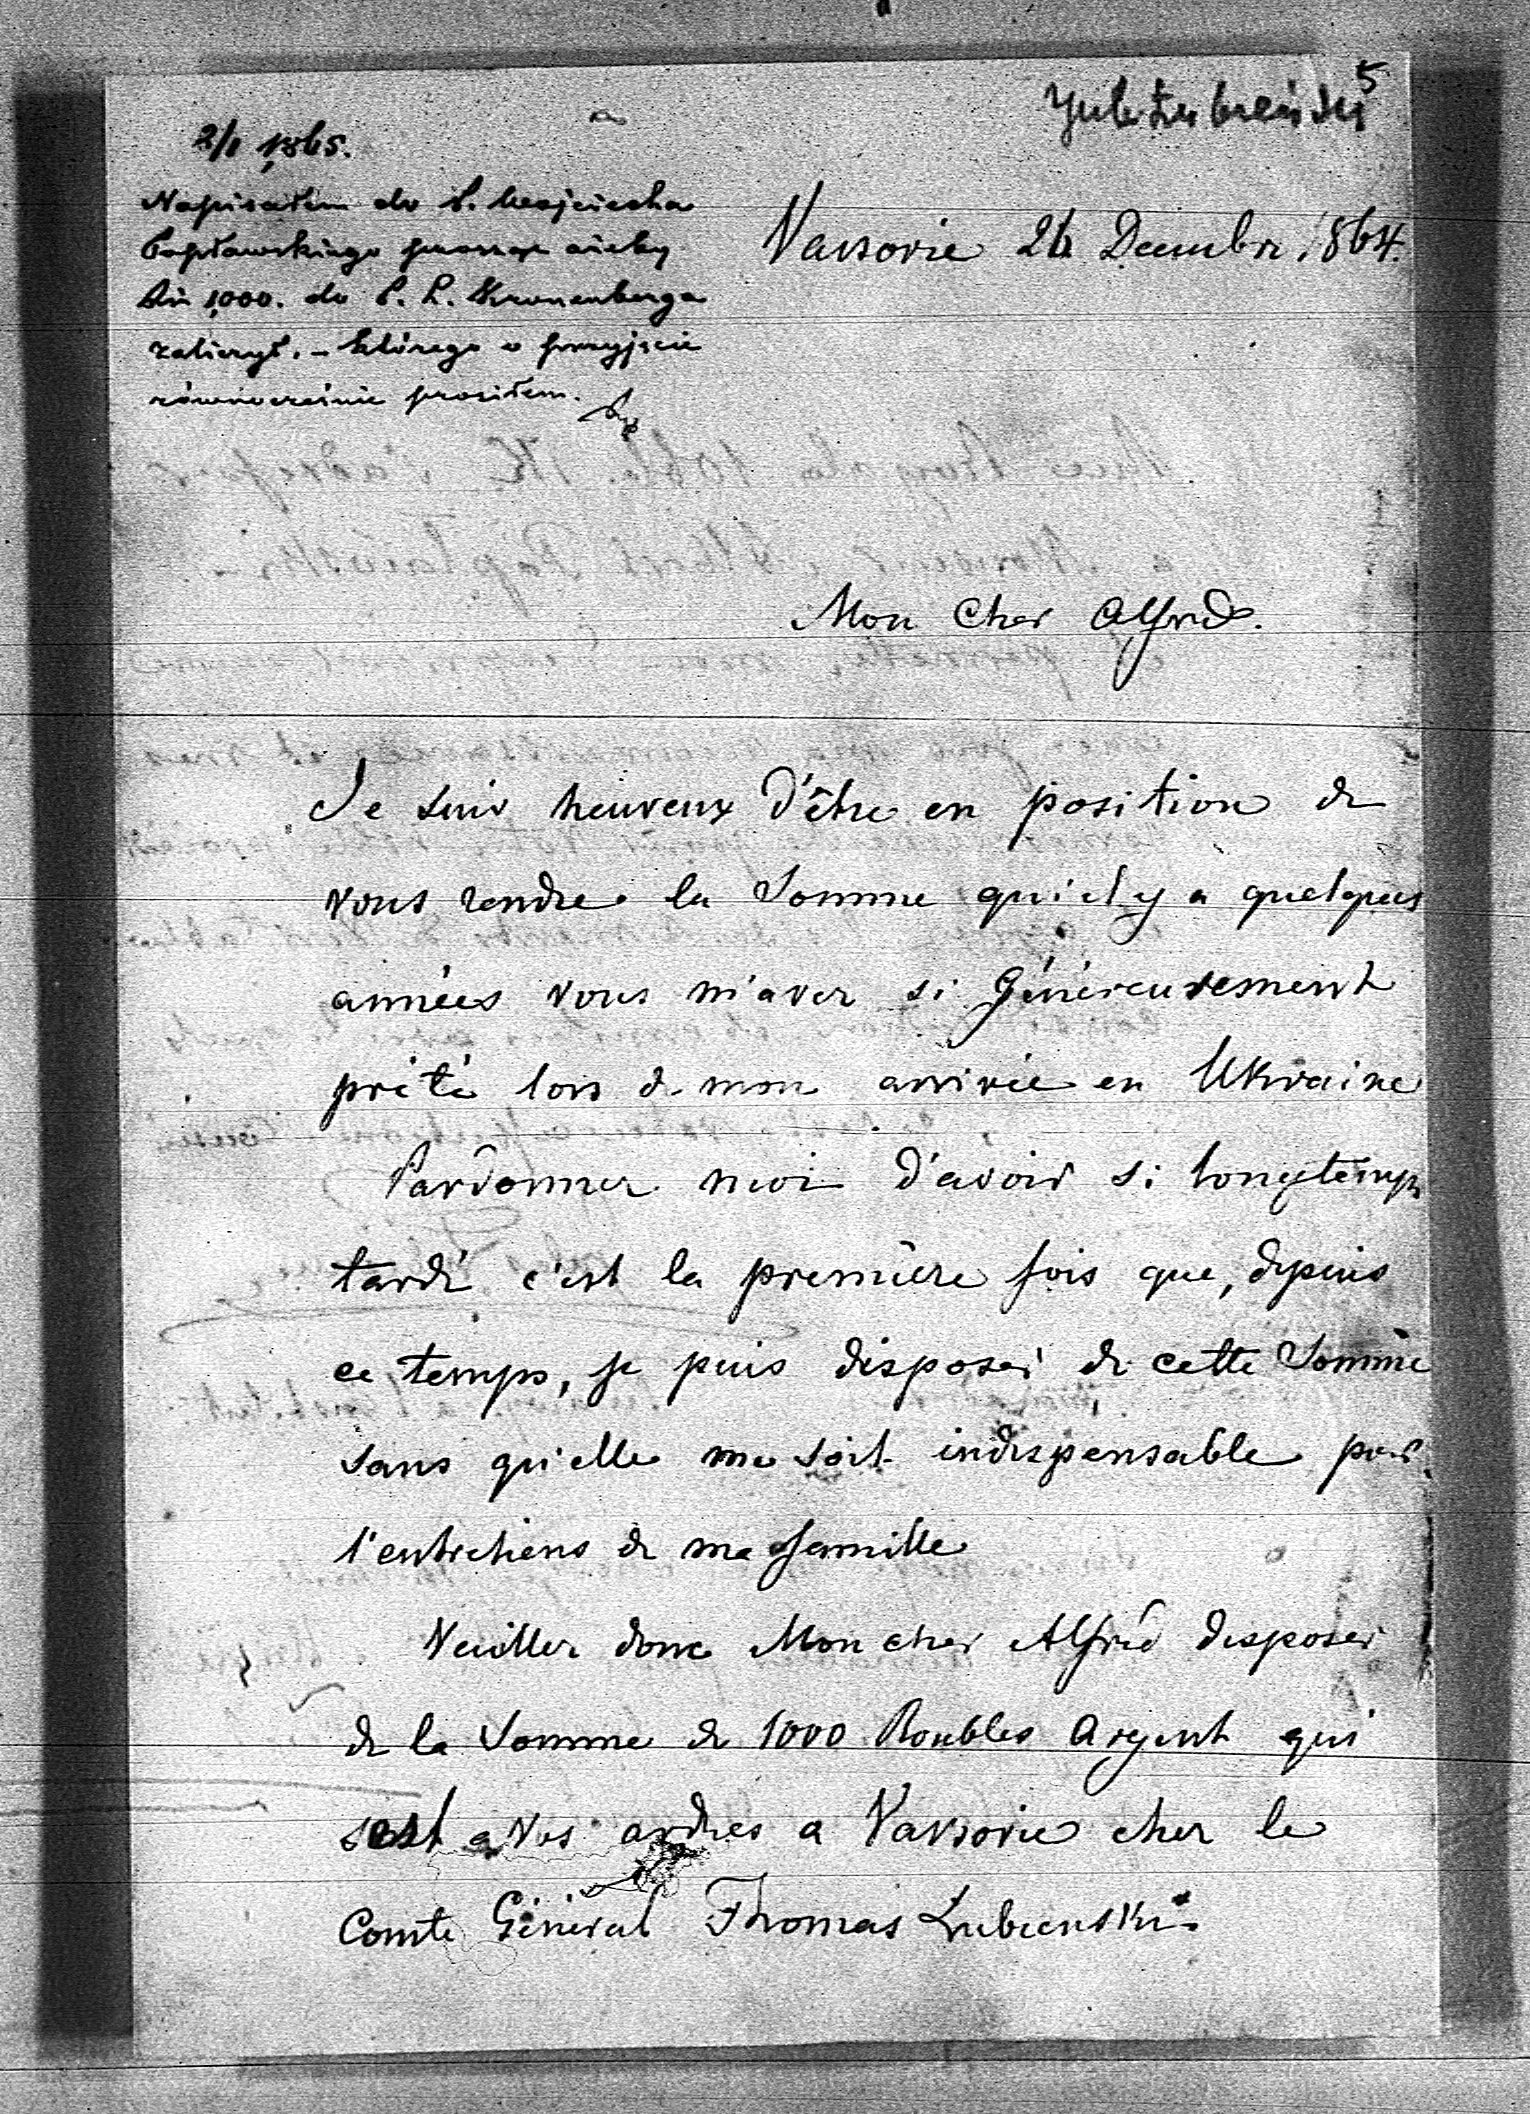 5
2/1 1865.
Napisałem do P. Wojciecha
Popławskiego prosząc ażeby
1000. do P. L. Kronenberga
zaliczył. – którego o przyjęcie
równocześnie prosiłem.
Varsovie 26 Decembre 1864.
Mon Cher Alfred.
Je suis heureux d'être en position de
vous rendre la Somme qu'il y a quelques
années vous m'avez si généreusement
prêté lors de mon arrivée en Ukraine
Pardonnez moi d'avoir si longtemps
tardé c'est la première fois que, depuis
ce temps, je puis disposer de cette Somme
sans qu'elle me soit indispensable pour
l'entretiens de ma famille
Veuillez donc Mon cher Alfred disposer
de la Somme de 1000 Roubles Argent qui
est a vos ordres a Varsovie chez le
Comte Général Thomas Łubienski